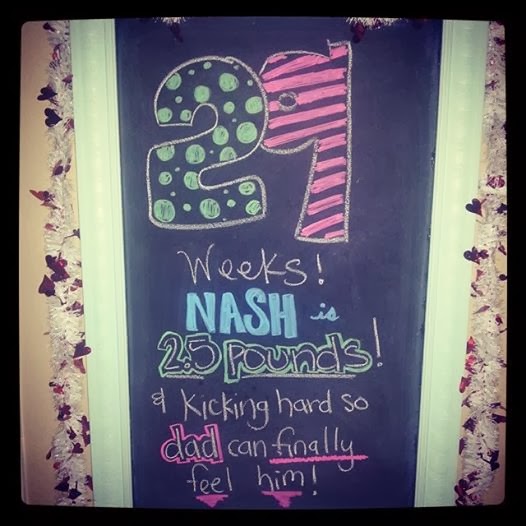 29
Weeks!
NASH is
2.5 pounds!
& kicking hard so
dad can finally
feel him!